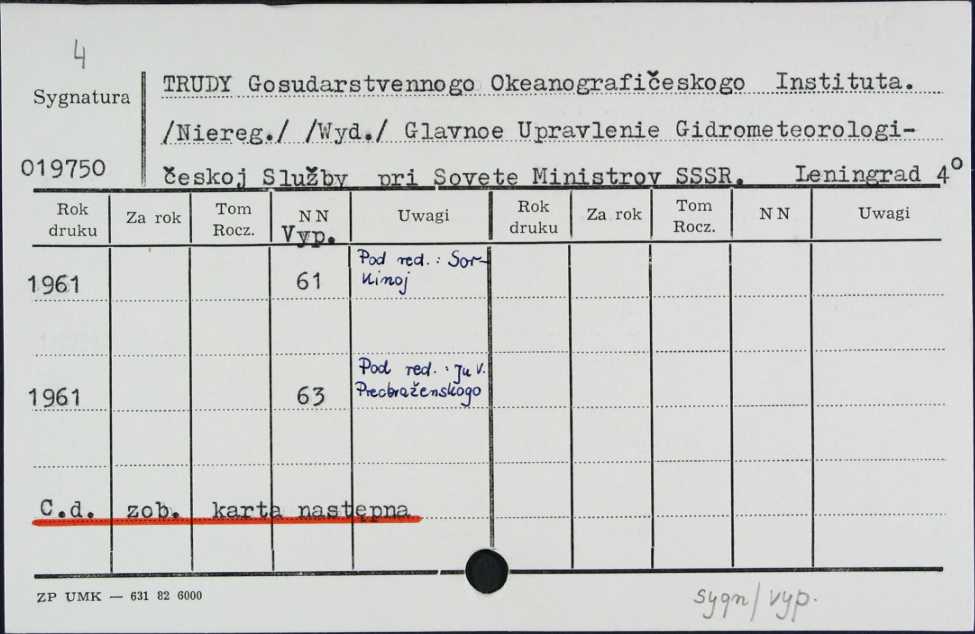 4
Sygnatura
019750
TRUDY Gosudarstvennogo Okeanografičeskogo Instituta.
/Niereg./ /Wyd./ Glavnoe Upravlenie Gidrometeorologi-
českoj Služby pri Sovete Ministrov SSSR. Leningrad 4°
Rok druku Za rok Tom Rocz. NN Vyp. Uwagi Rok druku Za rok Tom Rocz. NN Uwagi
1961 61 Pod red.: Sor-
kinoj
1961 63 Pod red.: Ju V.
Preobraženskogo
C.d. zob. karta następna
ZP UMK — 631 82 6000
sygn/vyp.